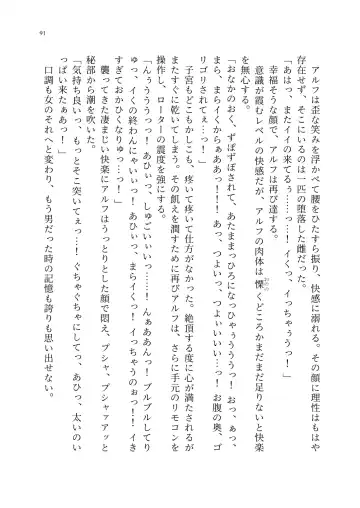 91
アルフは歪な笑みを浮かべて腰をひたすら振り、快感に溺れる。その顔に理性はもはや
存在せず、そこにいるのは一匹の堕落した雌だった。
「あはっ、まだイイの来てるぅ……‼ イくっ、イっちゃううっ！」
幸福そうな顔で、アルフは再び達する。
意識が霞むレベルの快感だが、アルフの肉体は慄くどころかまだまだ足りないと快楽
を無心する。
「おなかのおく、ずぼずぼされて、あたままっひろになっひゃぅううう！ おっ、あっ、
まら、まらイくからぁああっ！ あっ、つよいっ、つよぉいいい…っ！ お腹の奥、ゴ
リゴリされてぇ…っ！」
子宮もどこもかしこも、疼いて疼いて仕方がなかった。絶頂する度に心が満たされるが
またすぐに乾いてしまう。その飢えを潤すために再びアルフは、さらに手元のリモコンを
操作し、ローターの震度を強にする。
「んぅうううっ！ あひぃっ、しゅごいぃっ……！ んぁああんっ！ ブルブルしてり
ゅっ、イくの終わんにゃいいっ！ あひぃっ、まらイくっ！ イっちゃうのぉっ‼ イき
すぎておかひくなりゅっ…っ！」
襲ってきた凄まじい快楽にアルフはうっとりとした顔で悶え、プシャ、プシャァアッと
秘部から潮を吹いた。
「気持ち良いっ、もっとそこ突いてぇっ…！ ぐちゃぐちゃにしてっ、あひっ、太いのい
っぱい来たぁあっ！」
口調も女のそれへと変わり、もう男だった時の記憶も誇りも思い出せない。